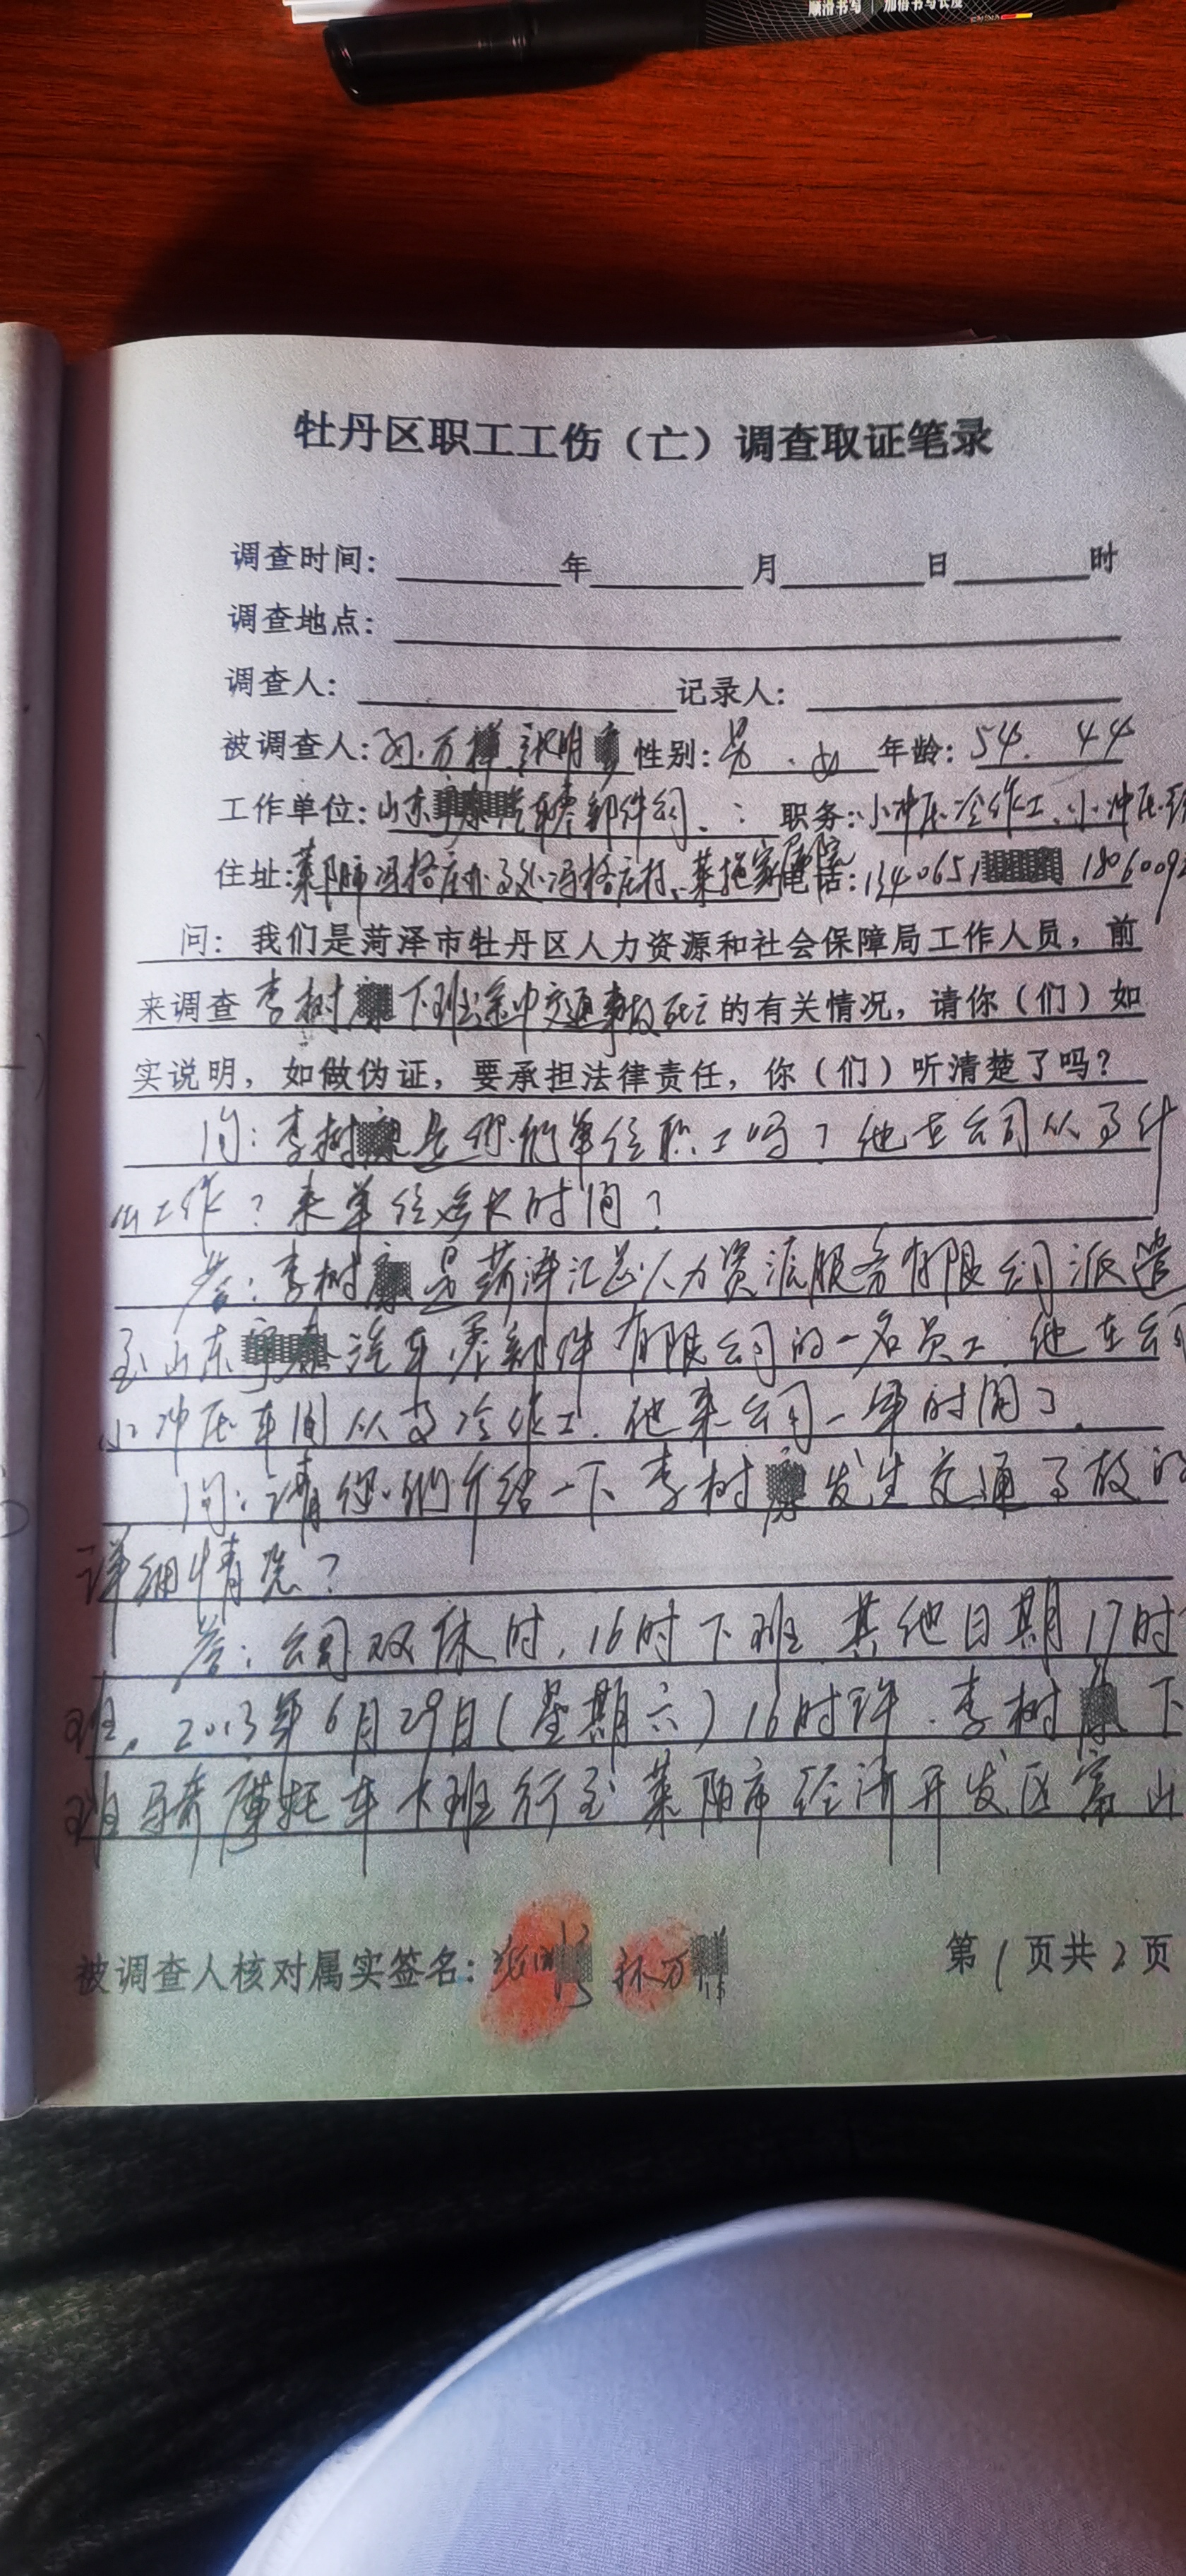 顺滑书写 | 加倍书写长度
牡丹区职工工伤（亡）调查取证笔录
调查时间：年月日时
调查地点：
调查人：记录人：
被调查人：孙万 张明 性别：男、女 年龄：54、44
工作单位：山东 汽车零部件公司、职务：小冲压冷作工、小冲压
住址：莱阳市冯格庄办事处冯格庄村、莱拖家属院 电话：1340651 1806009
问：我们是菏泽市牡丹区人力资源和社会保障局工作人员，前
来调查李树 下班途中交通事故死亡的有关情况，请你（们）如
实说明，如做伪证，要承担法律责任，你（们）听清楚了吗？
问：李树 是您们单位职工吗？他在公司从事什
么工作？来单位多长时间？
答：李树 是菏泽汇总人力资源服务有限公司派遣
至山东 汽车零部件有限公司的一名员工，他在公司
小冲压车间从事冷作工，他来公司一年时间了。
问：请您们介绍一下李树 发生交通事故的
详细情况？
答：公司双休时，16时下班 其他日期17时
班，2013年6月29日（星期六）16时许，李树 下
班骑摩托车下班行至莱阳市经济开发区富山
被调查人核对属实签名： 孙万
第1页共2页